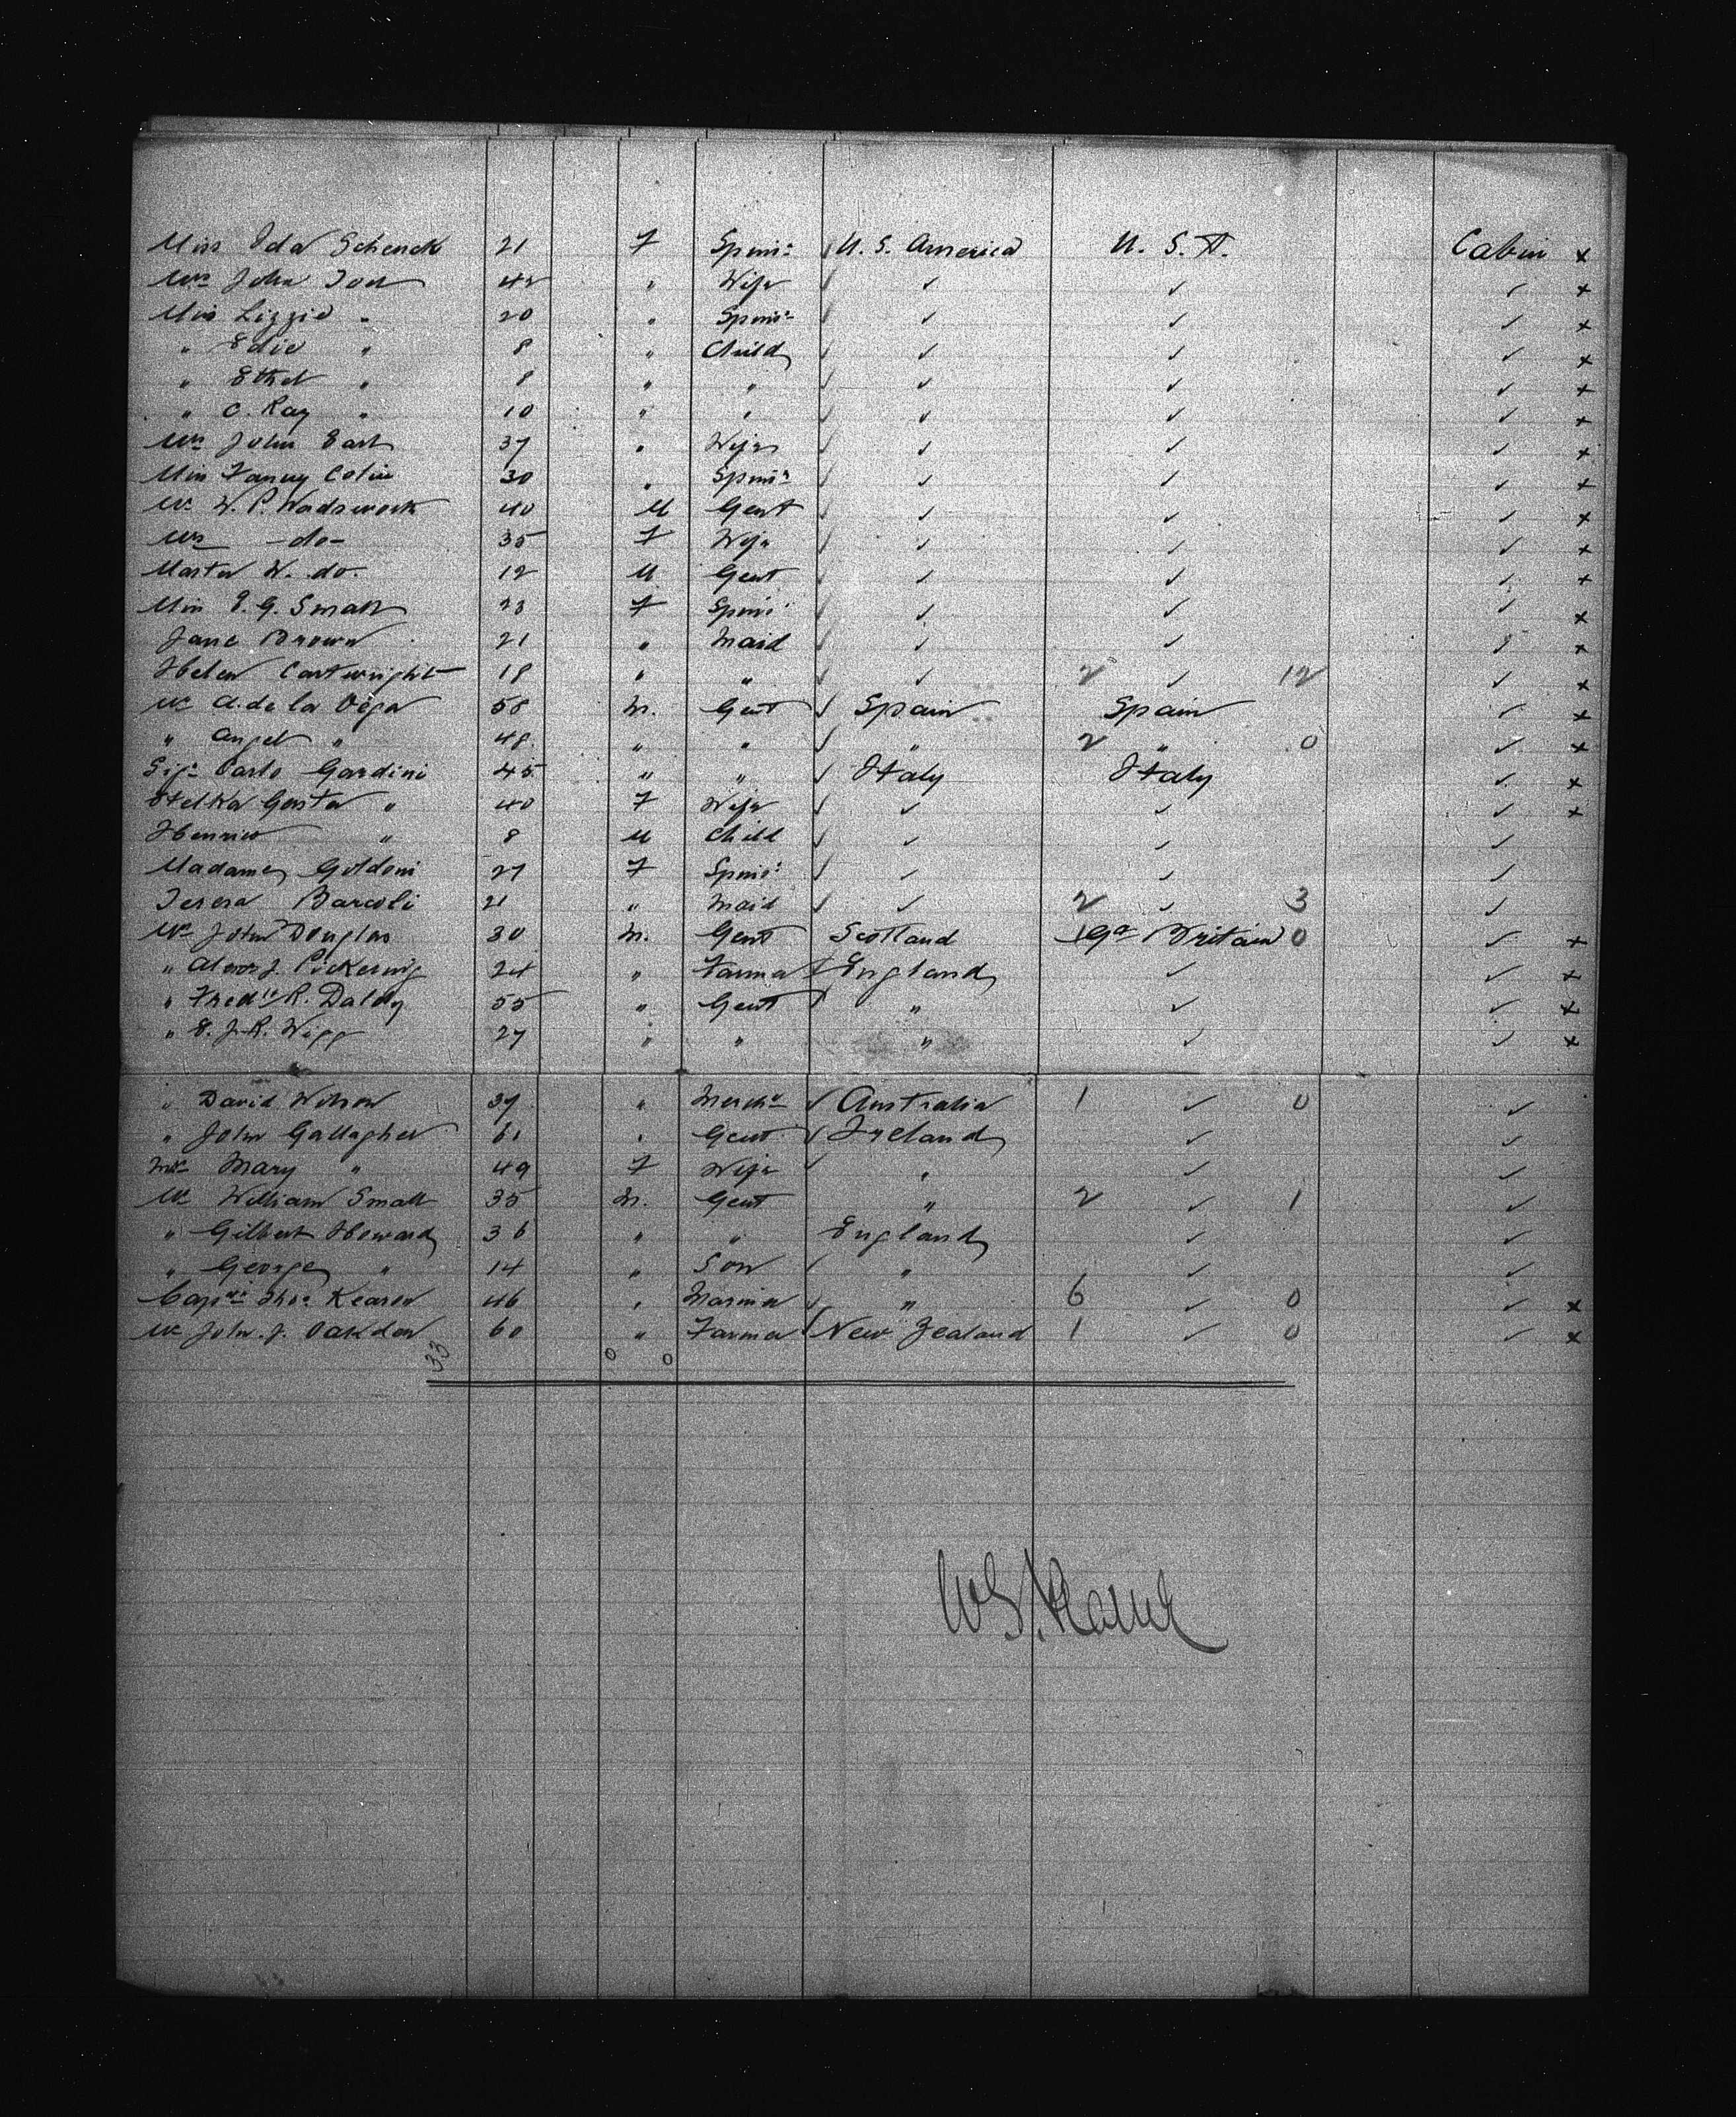 Miss Ida Schenck 21 F Spins. U. S. America U. S. A. Cabin x
Mrs John 42 " Wife ✓ ✓ ✓ x
Miss Lizzie " 20 " Spins. ✓ ✓ ✓ x
" Edie " 8 " Child ✓ ✓ ✓ x
" Ethel " 8 " " ✓ ✓ ✓ x
" C. Ray " 10 " " ✓ ✓ ✓ x
Mrs John 37 " Wife ✓ ✓ ✓ x
Miss Fanny 30 " Spins. ✓ ✓ ✓ x
Mr W. P. Wadsworth 40 M Gent ✓ ✓ ✓ x
Mrs -do- 35 F Wife ✓ ✓ ✓ x
Master W. do. 12 M. Gent ✓ ✓ ✓ x
Miss E. G. Small 23 F Spins. ✓ ✓ ✓ x
Jane Brown 21 " Maid ✓ ✓ x
Helen Cartwright 18 " " ✓ 2 ✓ 12 ✓ x
Mr A. de la Vega 58 M. Gent Spain Spain ✓ x
" Angel " 48 " " " 2 " 0 ✓ x
Sigr Carlo Gardini 45 " " Italy Italy ✓ x
Etelka Gerster " 40 F Wife ✓ ✓ ✓ x
" 8 M Child ✓ ✓ ✓
Madame Goldoni 27 F Spins. ✓ ✓ ✓
Teresa Barcoli 21 " Maid ✓ 2 ✓ 3 ✓
Mr John Douglas 30 M. Gent Scotland 1 Gt Britain 0 ✓ x
" J. Pickering 24 " Farmer England ✓ ✓ x
" Fredk R. Daldy 55 " Gent " ✓ ✓ x
" E. J. R. Wigg 27 " " " ✓ ✓ x
" David Wilson 39 " Mercht Australia 1 ✓ 0 ✓
" John Gallagher 61 " Gent Ireland ✓ ✓
Mrs Mary " 49 F Wife " ✓ ✓
Mr William Small 35 M. Gent " 2 ✓ 1 ✓
" Gilbert Howard 36 " " England ✓ ✓
" George " 14 " Son " ✓ ✓
Captn Thos Kearon 46 " Mariner " 6 ✓ 0 ✓ x
Mr John. J. Oakden 60 " Farmer New Zealand 1 ✓ 0 ✓ x
33 0 0